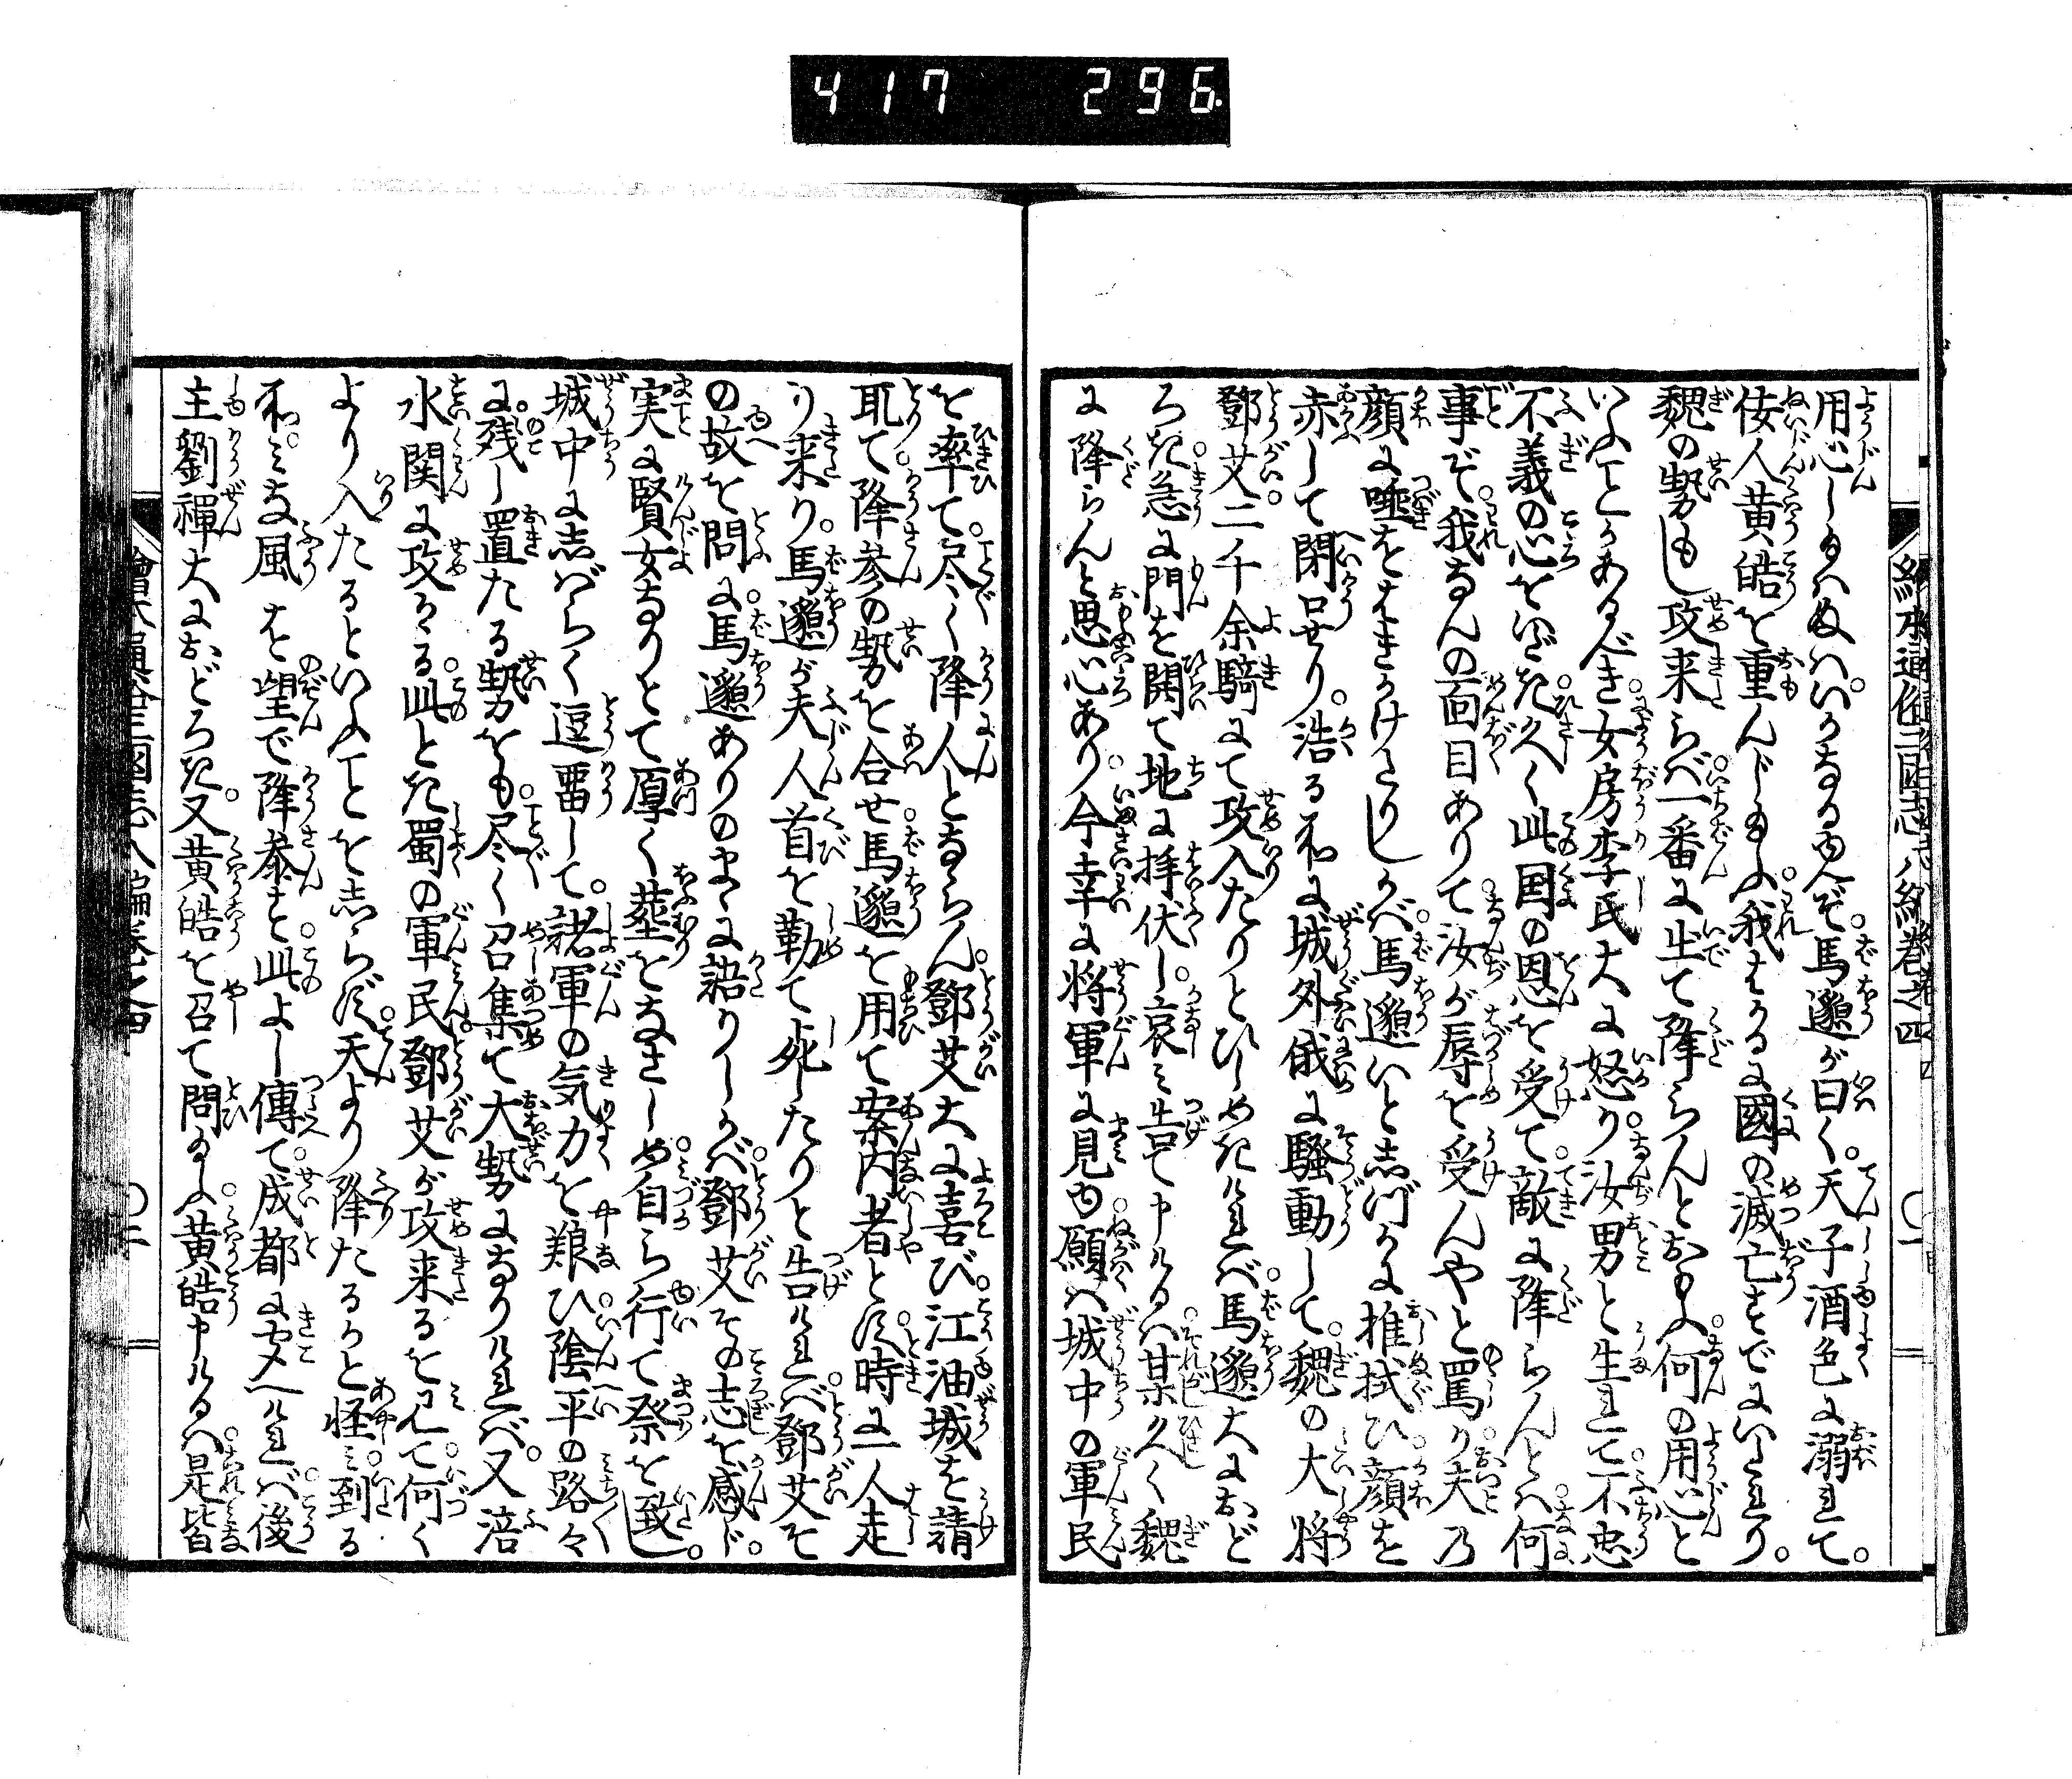 417 296
用心し給はぬはいかなる御心ぞ。馬邈が曰く。天子酒色に溺れて。
佞人黄皓を重んじ給ふ我はかるに國の滅亡すでにいたれり。
魏の勢もし攻来らば一番に生て降らんとおもふ何の用心と
いふことかあるべき女房李氏大に怒り。汝男と生れて不忠
不義の心をいだき久く此国の恩を受て敵に降らんとは何
事ぞ我なんの面目ありて汝が辱を受んやと罵り夫乃
顔に唾をはきかけたりしかば馬邈いと志づかに推拭ひ顔を
赤して閉口せり。浩る和に城外俄に騒動して魏の大将
鄧艾二千余騎にて攻入たりとひしめきければ馬邈大におど
ろき急に門を開て地に拝伏し。哀み告て申けるは某久く魏
に降らんと思心あり今幸に将軍に見ゆ願くは城中の軍民
を率て。尽く降人とならん。鄧艾大に喜び。江油城を請
取て降参の勢を合せ馬邈を用て案内者とす時に一人走
り来り。馬邈が夫人首を勒て死したりと告ければ鄧艾そ
の故を問に馬邈ありのまゝに語りしかば鄧艾その志を感じ。
実に賢女なりとて厚く葬をなさしめ自ら行て祭を致し。
城中に志ばらく逗畱して。諸軍の気力を養ひ陰平の路々
に残し置たる勢をも尽く召集て大勢になりければ。又涪
水関に攻かゝる此とき蜀の軍民鄧艾が攻来るを見て何く
より入たるといふことを志らず天より降たるかと怪み到る
和みな風を望で降参す此よし傳て成都に聞へければ後
主劉禪大におどろき。又黄皓を召て問給ふ黄皓申けるは是皆